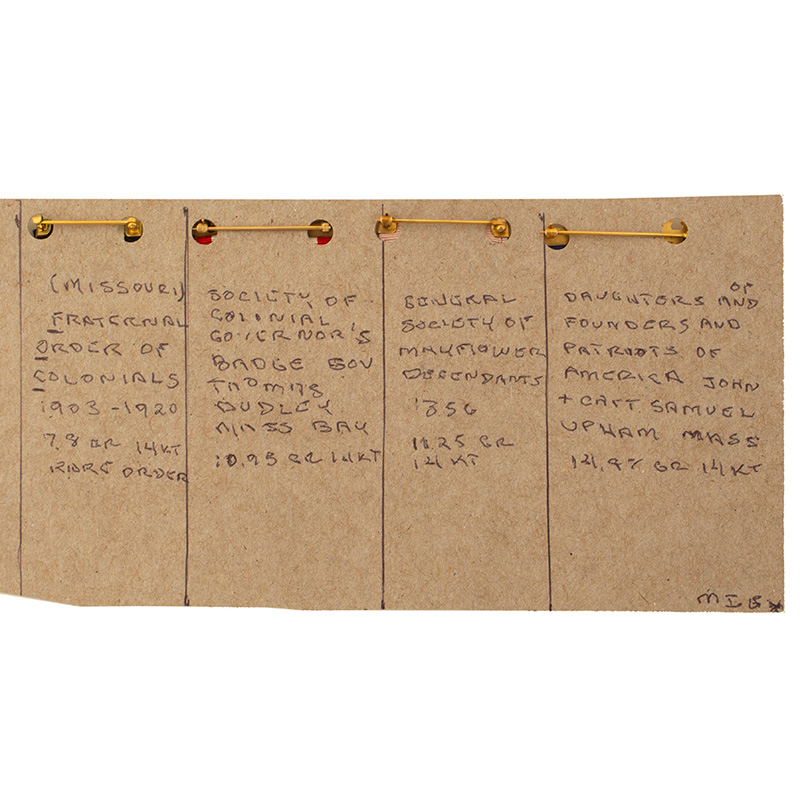 (MISSOURI)
FRATERNAL
ORDER OF
COLONIALS
1903-1920
7.8 GR 14KT
RARE ORDER
SOCIETY OF
COLONIAL
GOVERNOR'S
BADGE GOV
THOMAS
DUDLEY
MASS BAY
10.95 GR 14KT
GENERAL
SOCIETY OF
MAYFLOWER
DEFENDANTS
11.25 GR
14 KT
OF
DAUGHTERS AND
FOUNDERS AND
PATRIOTS OF
AMERICA JOHN
+ CAPT SAMUEL
UPHAM MASS
14.97 GR 14KT